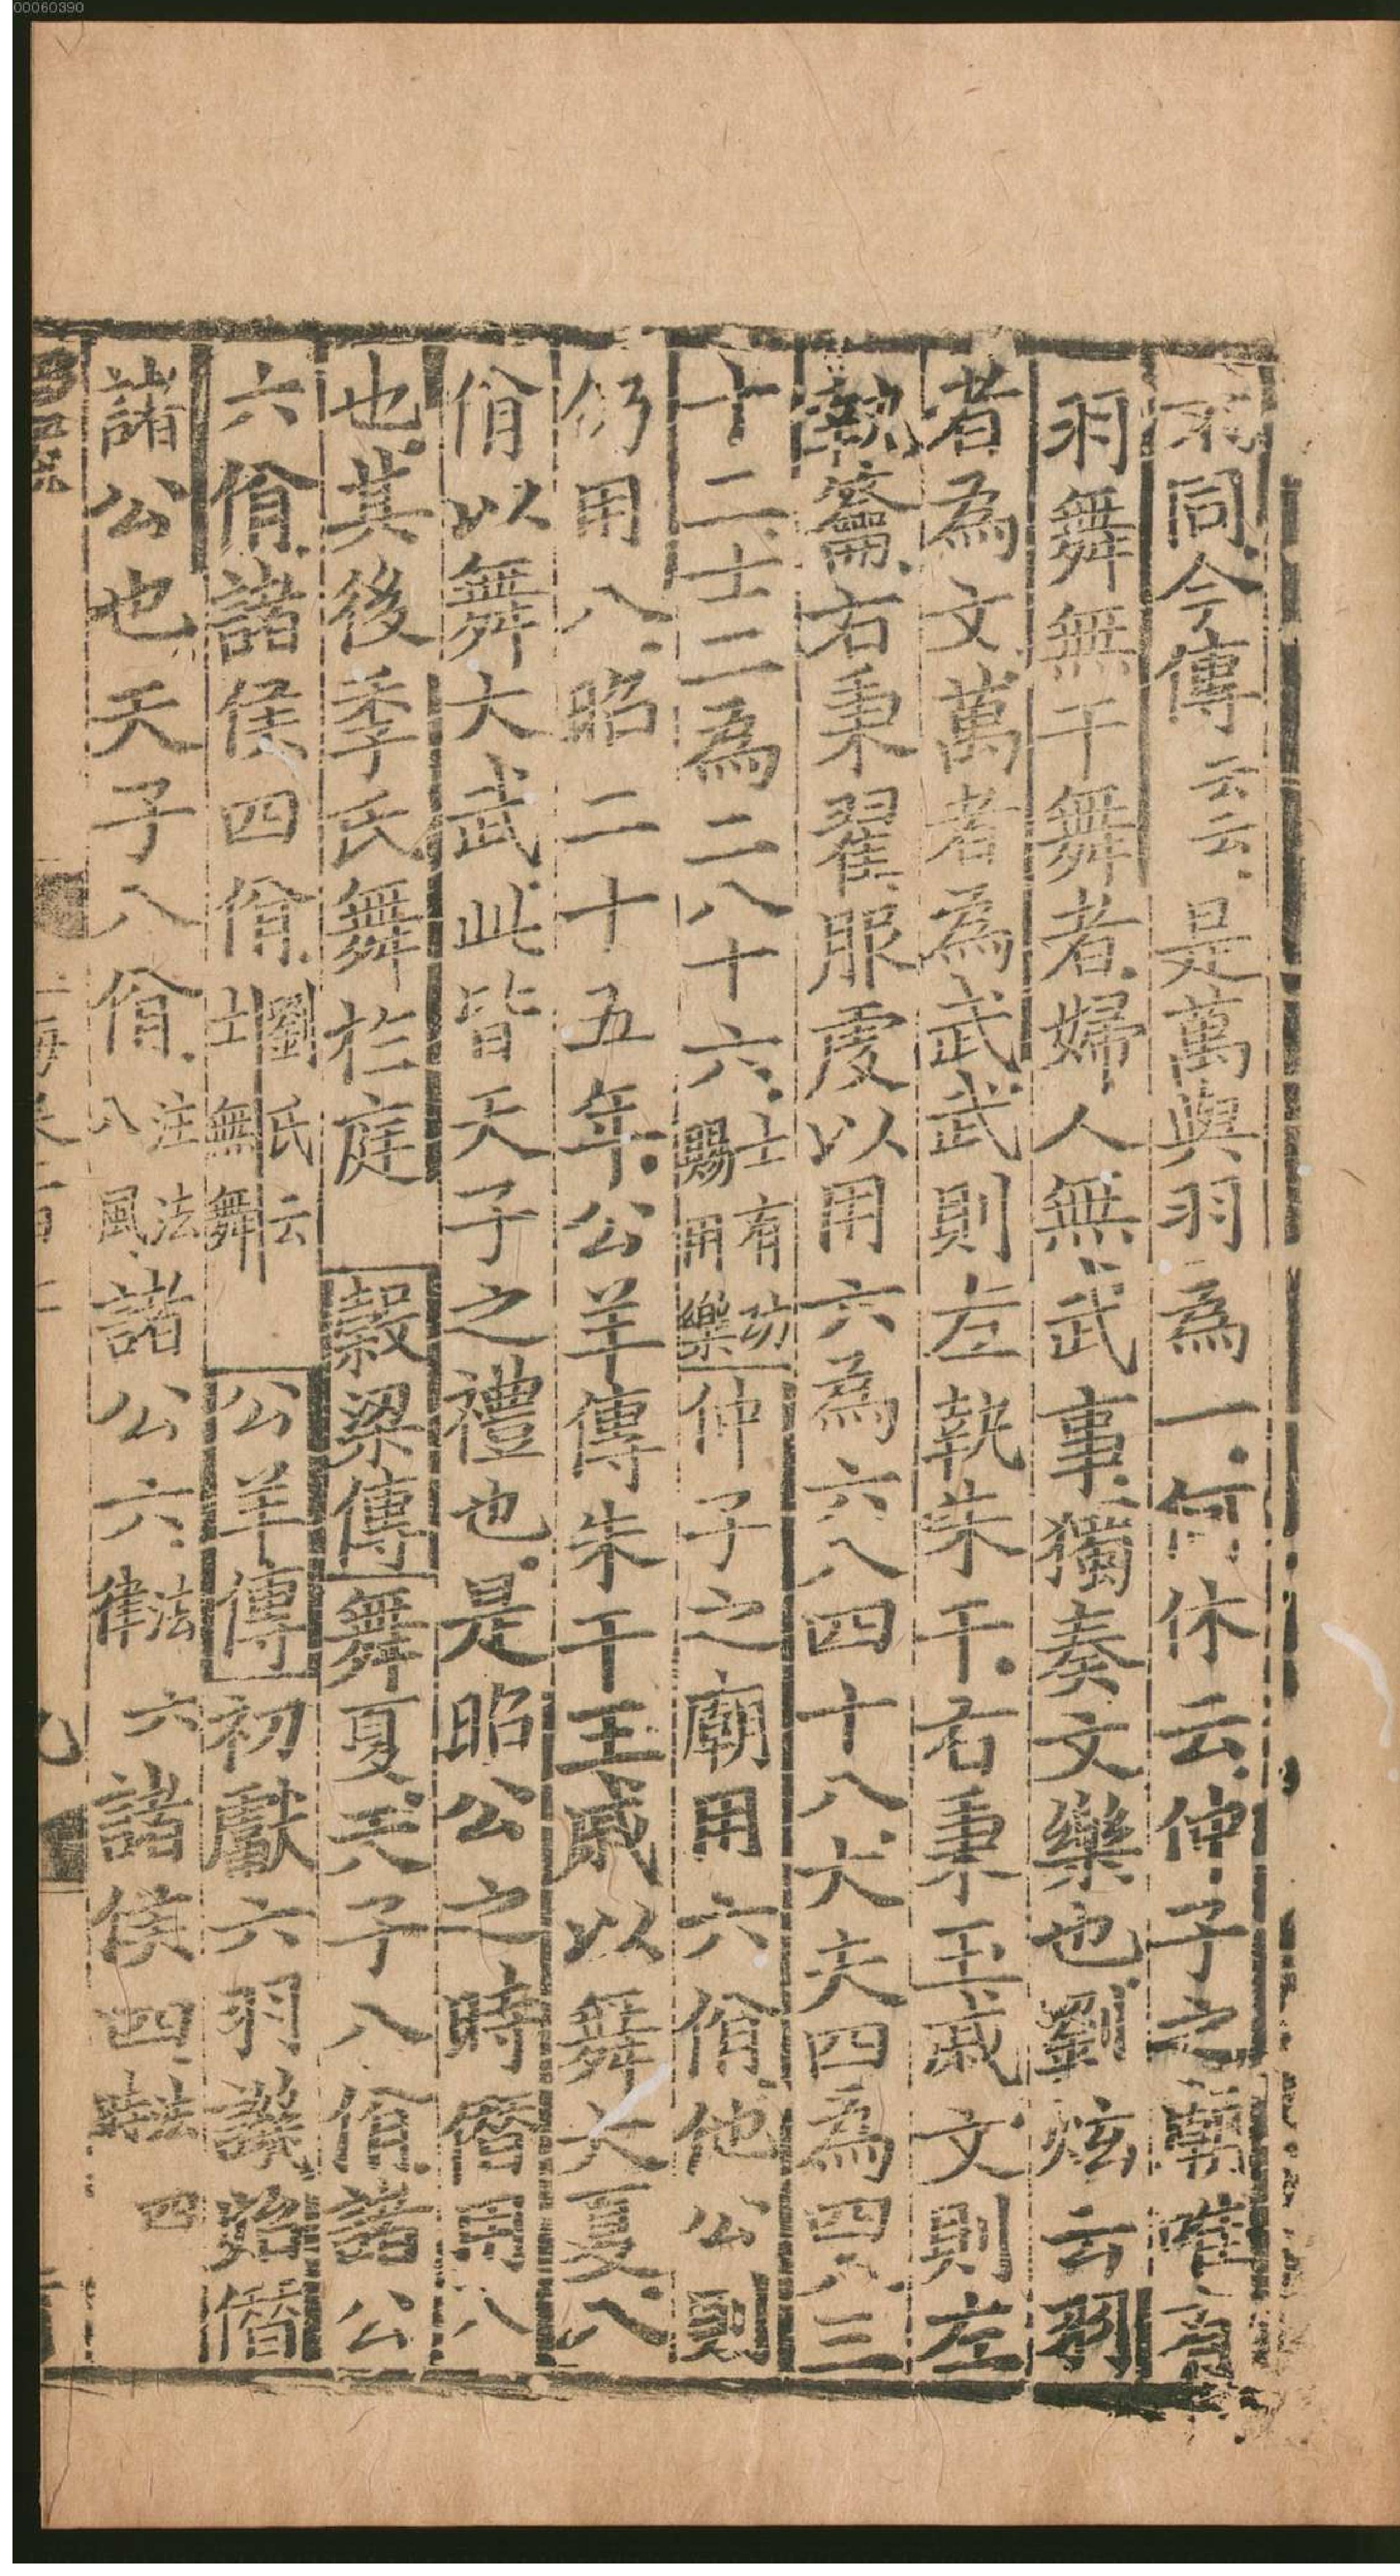 00060390
不同今傳云云是萬與羽為一何休云仲子之廟唯有
羽舞無干舞者婦人無武事獨奏文樂也劉炫云羽
者為文萬者為武武則左執朱干右秉玉戚文則左
執籥右秉翟服虔以用六為六八四十八大夫四為四八三
十二士二為二八十六士有功賜用樂仲子之廟用六佾他公則
仍用八昭二十五年公羊傳朱干玉戚以舞大夏八
佾以舞大武此皆天子之禮也是昭公之時僭用八
也其後季氏舞於庭 穀梁傳舞夏天子八佾諸公
六佾諸侯四佾劉氏云士無舞 公羊傳初獻六羽譏始僭
諸公也天子八佾注法八風諸公六法六律諸侯四法四時